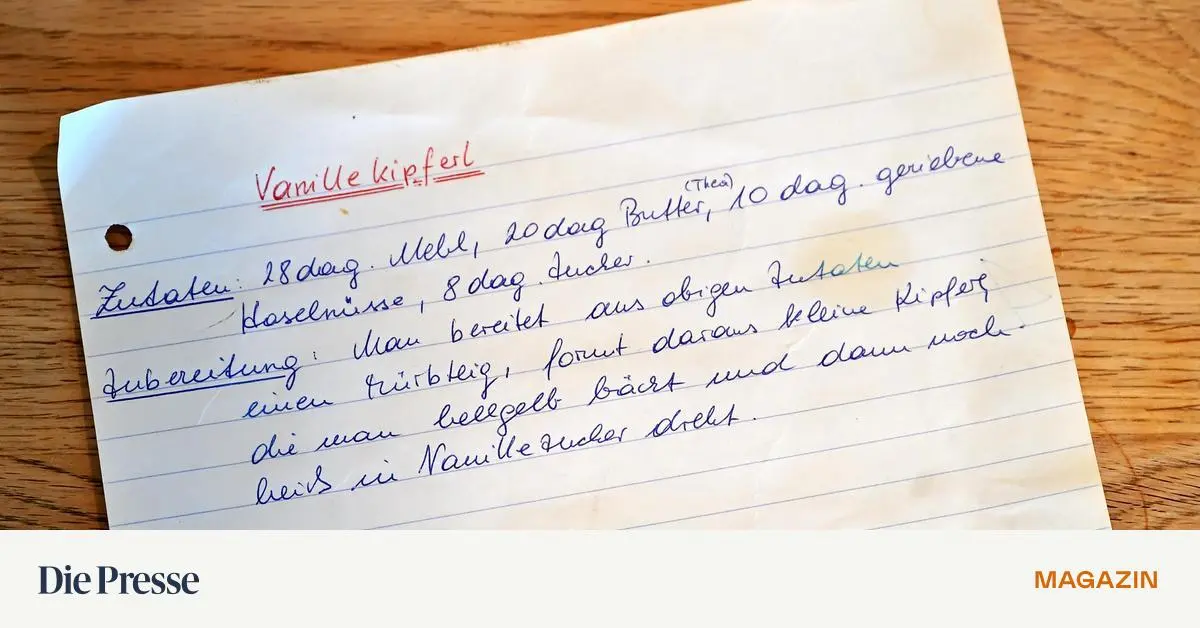 Vanillekipferl
(Thea)
Zutaten: 28 dag. Mehl, 20 dag Butter, 10 dag. geriebene
Haselnüsse, 8 dag. Zucker.
Zubereitung: Man bereitet aus obigen Zutaten
einen Mürbteig, formt daraus kleine Kipferl,
die man hellgelb bäckt und dann noch
heiß in Vanillezucker dreht.
Die Presse
MAGAZIN